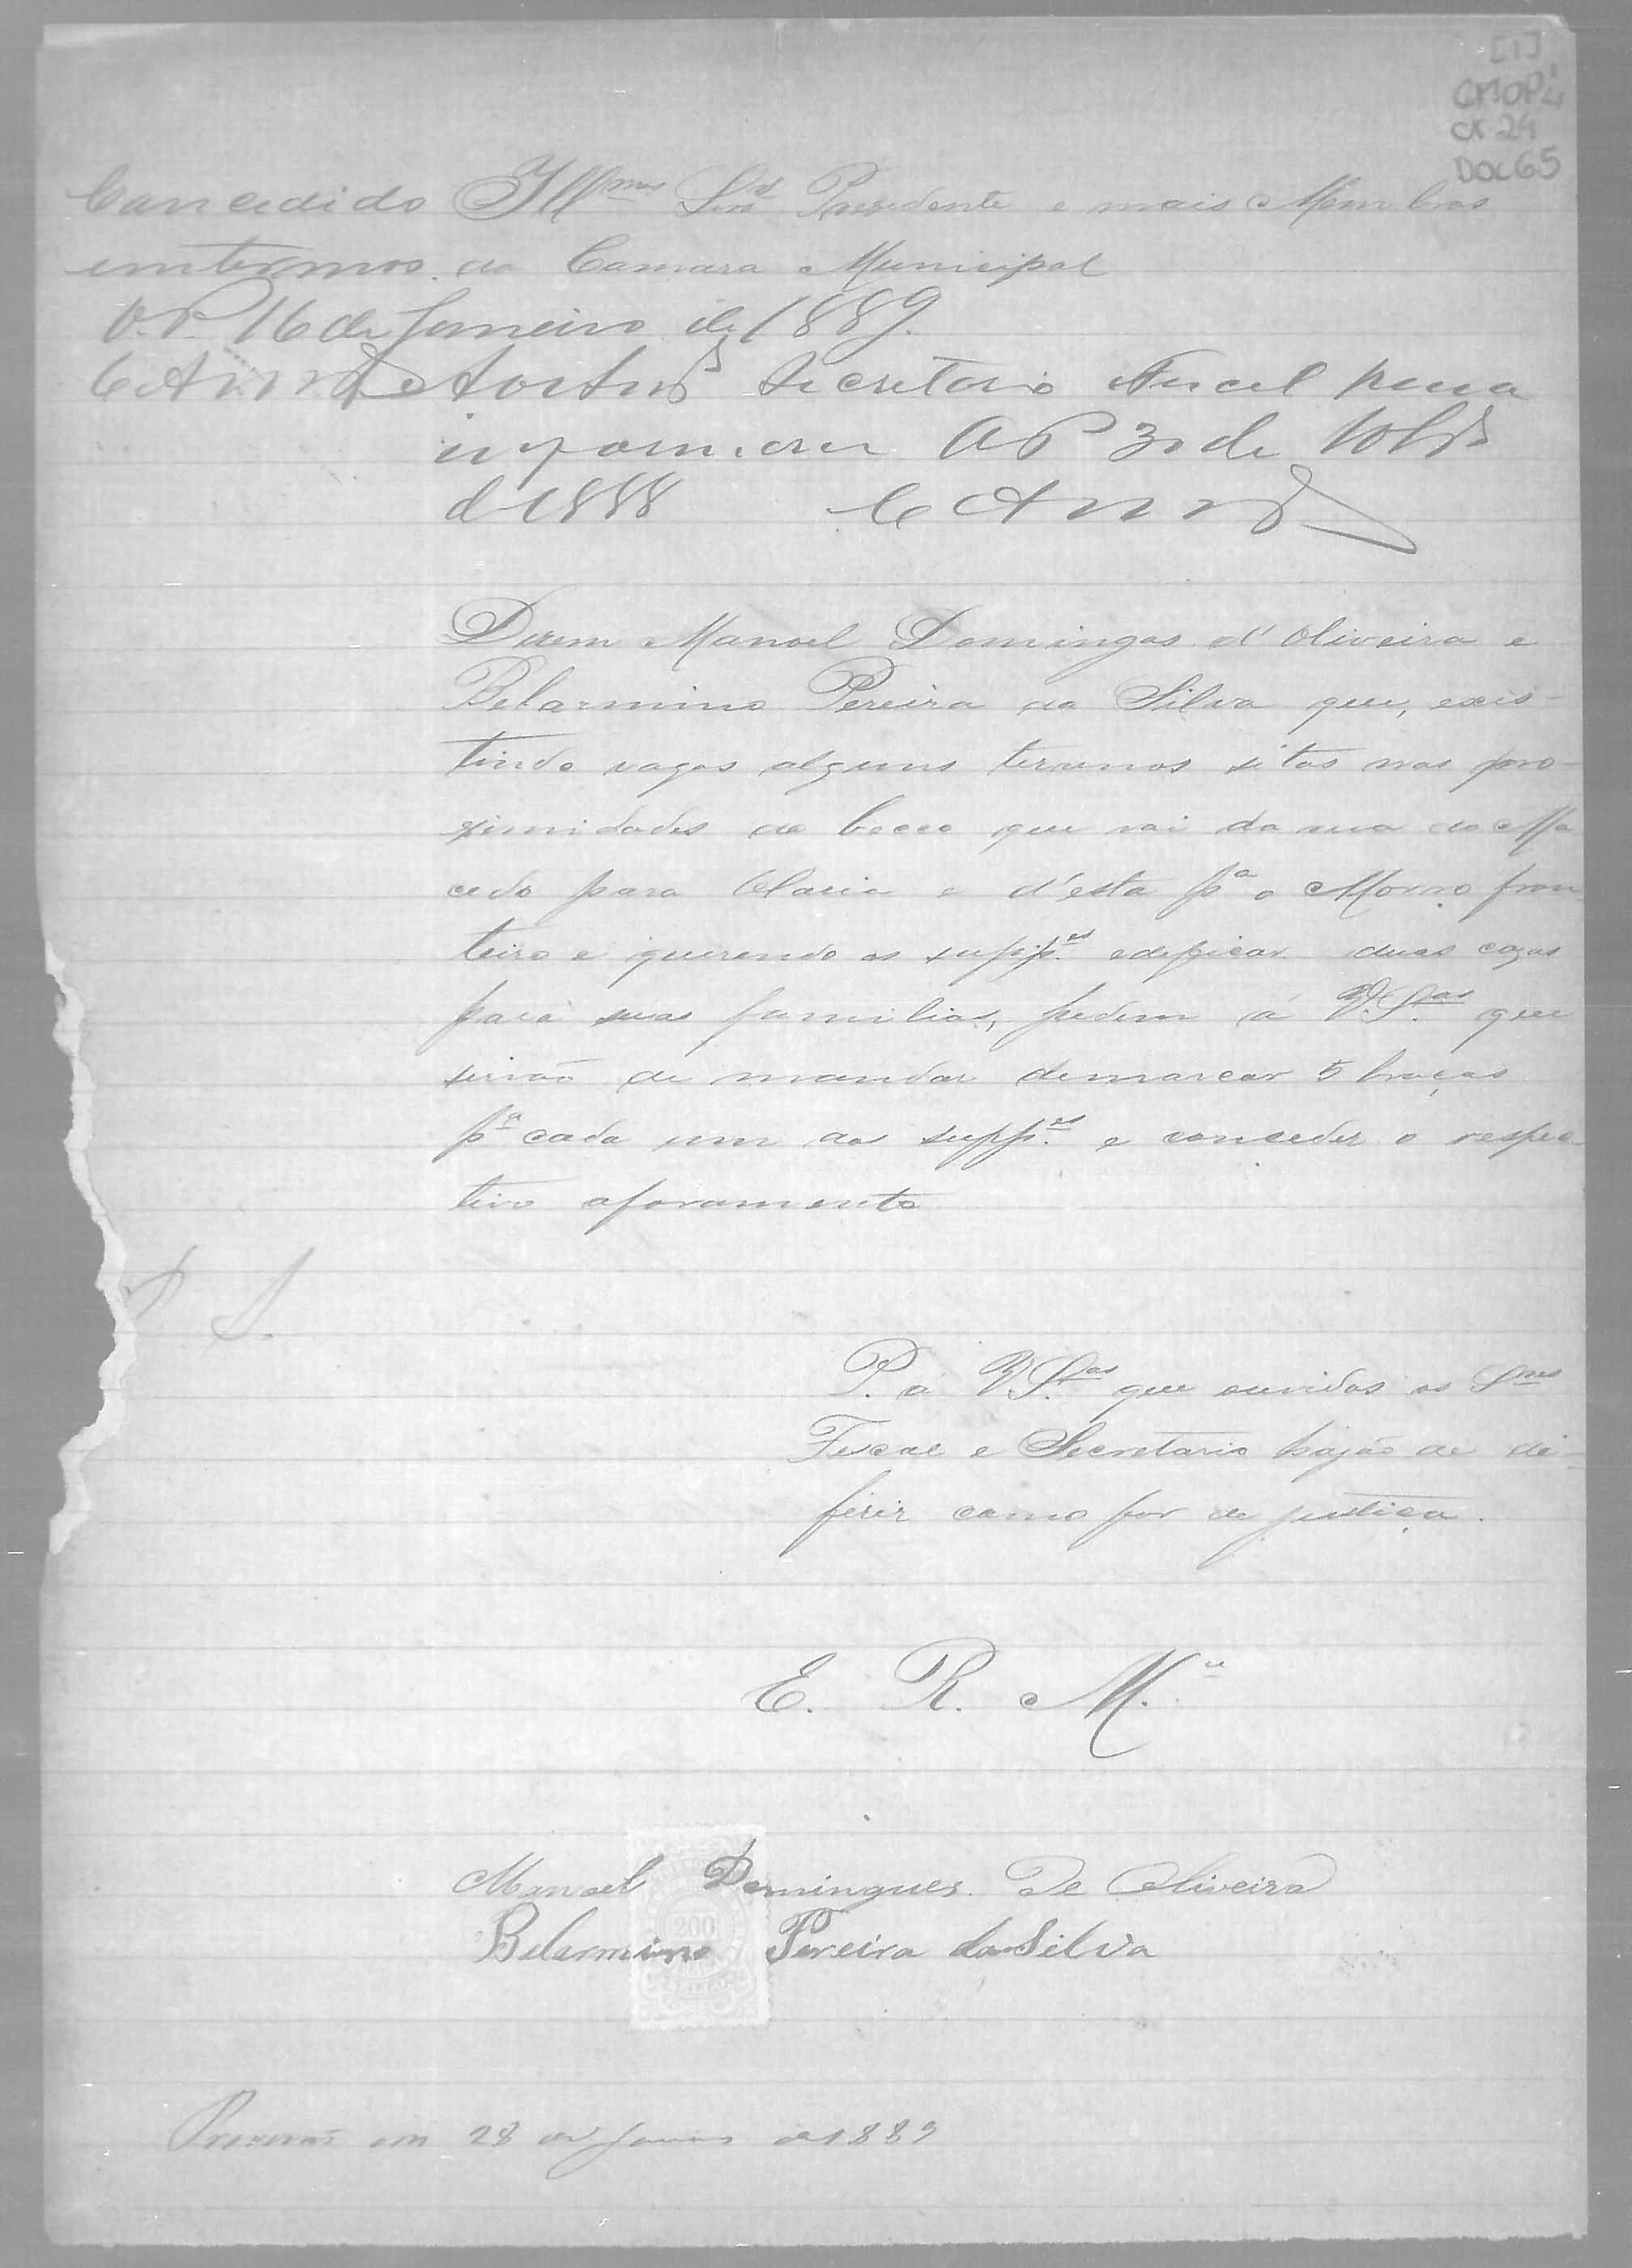 [1]
CMOP
CX 24
DOC 65
Concedido Ill.mos Snrs Presidente e mais Membros
em termos. da Camara Municipal
O.P. 16 de Janeiro de 1889.
Secretario Fiscal para
informar OP 30 de 10br.o
d 1888
Dizem Manoel Domingos d'Oliveira e
Belarmino Pereira da Silva que, exis-
tindo vagos alguns terrenos sitos nas pro-
ximidades do becco que vai da rua do Ma
cedo para Olaria e d'esta p.a o Morro fron
teiro e querendo os supp.es edificar duas cazas
para suas familias, pedem á V.S.as que
sirvão de mandar demarcar 5 braças
p.a cada um dos supp.es e conceder o respec
tivo aforamento
P. a V.S.as que ouvidos os Snres
Fiscal e Secretario hajão de de-
ferir como for de justiça.
E. R. M.ce
Manoel Domingues De Oliveira
Belarmino Pereira da Silva
200
em 28 de Janro de 1889